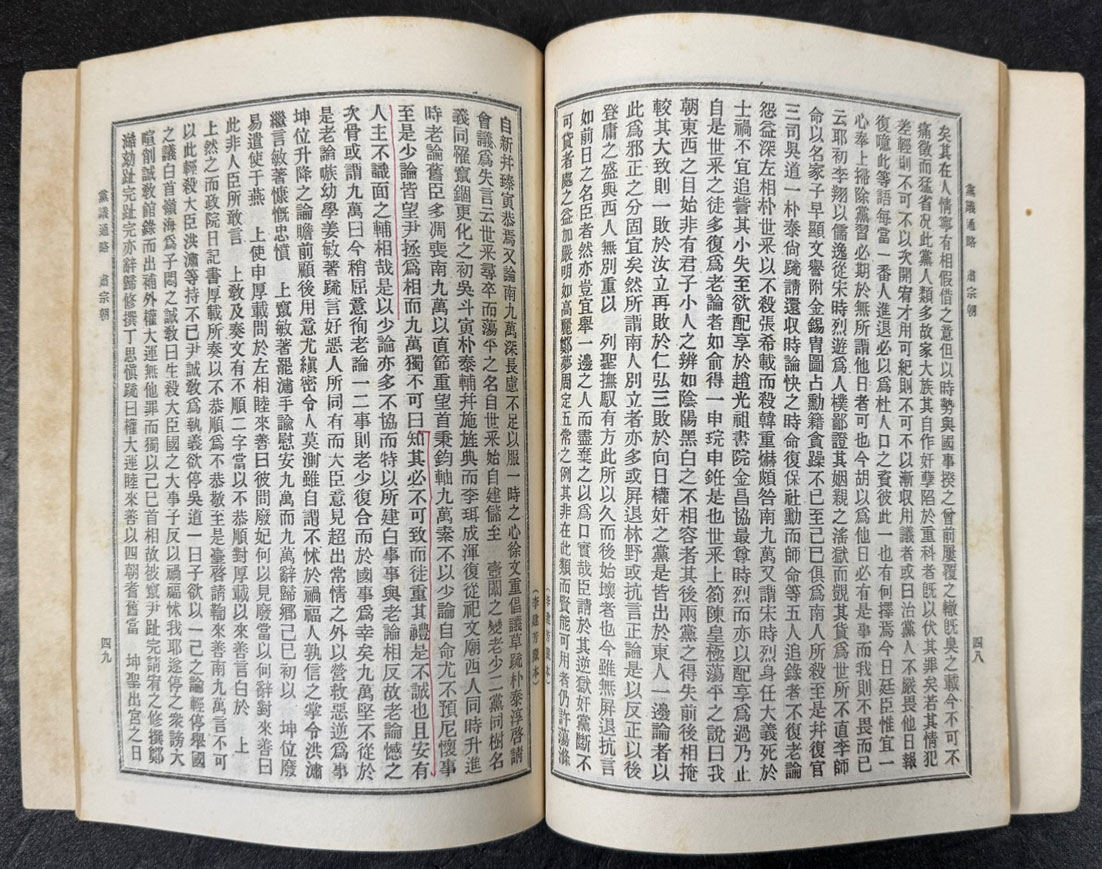 黨議通略 肅宗朝
四八
矣其在人情寧有相假借之意但以時勢與國事揆之曾前屢覆之轍旣臭之載今不可不
痛徵而猛省況此黨人類多故家大族其自作奸孼陷於重科者旣以伏其罪矣若其情犯
差輕則不可不以次開宥才用可紀則不可不以漸取用議者或曰治黨人不嚴畏他日報
復噫此等語每當一番人進退必以爲杜人口之資彼此一也有何擇焉今日廷臣惟宜一
心奉上掃除黨習必期於無所謂他日者可也今胡以爲他日必有是事而我則不畏而已
云耶初李翔以儒逸從宋時烈遊爲人樸鄙證其姻親之潘獄而覬其貨爲世所不直李師
命以名家子早顯文譽附金錫冑圖占勳籍貪躁不已至己巳俱爲南人所殺至是幷復官
三司吳道一朴泰尙疏請還収時論快之時命復保社勳而師命等五人追錄者不復老論
怨益深左相朴世采以不殺張希載而殺韓重爀頗咎南九萬又謂宋時烈身任大義死於
士禍不宜追甞其小失至欲配享於趙光祖書院金昌協最尊時烈而亦以配享爲過乃止
自是世采之徒多復爲老論者如俞得一申琓申銋是也世采上箚陳皇極蕩平之說曰我
朝東西之目始非有君子小人之辨如陰陽黑白之不相容者其後兩黨之得失前後相掩
較其大致則一敗於汝立再敗於仁弘三敗於向日權奸之黨是皆出於東人一邊論者以
此爲邪正之分固宜矣然所謂南人別立者亦多或屛退林野或抗言正論是以反正以後
登庸之盛與西人無別重以 列聖撫馭有方此所以久而後始壞者也今雖無屛退抗言
如前日之名臣者然亦豈宜擧一邊之人而盡棄之以爲口實哉臣請於其逆獄奸黨斷不
可貸者處之益加嚴明如高麗鄭夢周定五常之例其非在此類而賢能可用者仍許蕩滌
(李建芳藏本)
自新幷臻寅恭焉又論南九萬深長慮不足以服一時之心徐文重倡議草疏朴泰淳啓請
會議爲失言云世采尋卒而蕩平之名自世采始自建儲至 壼闈之變老少二黨同樹名
義同罹竄錮更化之初吳斗寅朴泰輔幷施旌典而李珥成渾復從祀文廟西人同時升進
時老論舊臣多凋喪南九萬以直節重望首秉鈞軸九萬素不以少論自命尤不預尼懷事
至是少論皆望尹拯爲相而九萬獨不可曰知其必不可致而徒重其禮是不誠也且安有
人主不識面之輔相哉是以少論亦多不協而特以所建白事事與老論相反故老論憾之
次骨或謂九萬曰今稍屈意徇老論一二事則老少復合而於國事爲幸矣九萬堅不從於
是老論嗾幼學姜敏著疏言好惡人所同有而大臣意見超出常情之外以營救惡逆爲事
坤位升降之論瞻前顧後用意尤縝密令人莫測雖自謂不怵於禍福人孰信之掌令洪潚
繼言敏著慷慨忠憤 上竄敏著罷潚手諭慰安九萬而九萬辭歸鄕己巳初以 坤位廢
易遣使于燕 上使申厚載問於左相睦來善曰彼問廢妃何以見廢當以何辭對來善曰
此非人臣所敢言 上敎及奏文有不順二字當以不恭順對厚載以來善言白於 上
上然之而政院日記書厚載所奏以不恭順爲不恭敬至是臺啓請鞫來善南九萬言不可
以此輕殺大臣洪潚等持不已尹誠敎爲執義欲停吳道一曰子欲以一己之論輕停擧國
之議白首嶺海爲子悶之誠敎曰生殺大臣國之大事子反以禍福怵我耶遂停之衆謗大
喧削誠敎館錄而出補外權大運無他罪而獨以己巳首相故被竄尹趾完請宥之修撰鄭
澔劾趾完趾完亦辭歸修撰丁思愼疏曰權大運睦來善以四朝耆舊當 坤聖出宮之日
黨議通略 肅宗朝
四九
(李建芳藏本)